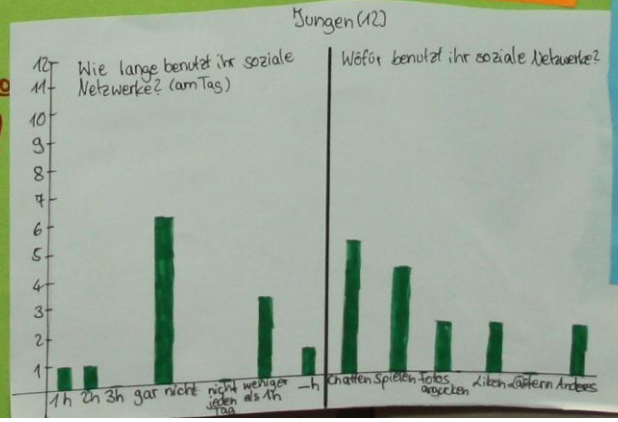 Jungen (12)
Wie lange benutzt ihr soziale
Netzwerke? (am Tag)
Wöfür benutzt ihr soziale Netzwerke?
12
11
10
9
8
7
6
5
4
3
2
1
1h 2h 3h gar nicht nicht jeden Tag weniger als 1h —h
Chatten Spielen Fotos angucken Liken Lästern Anderes